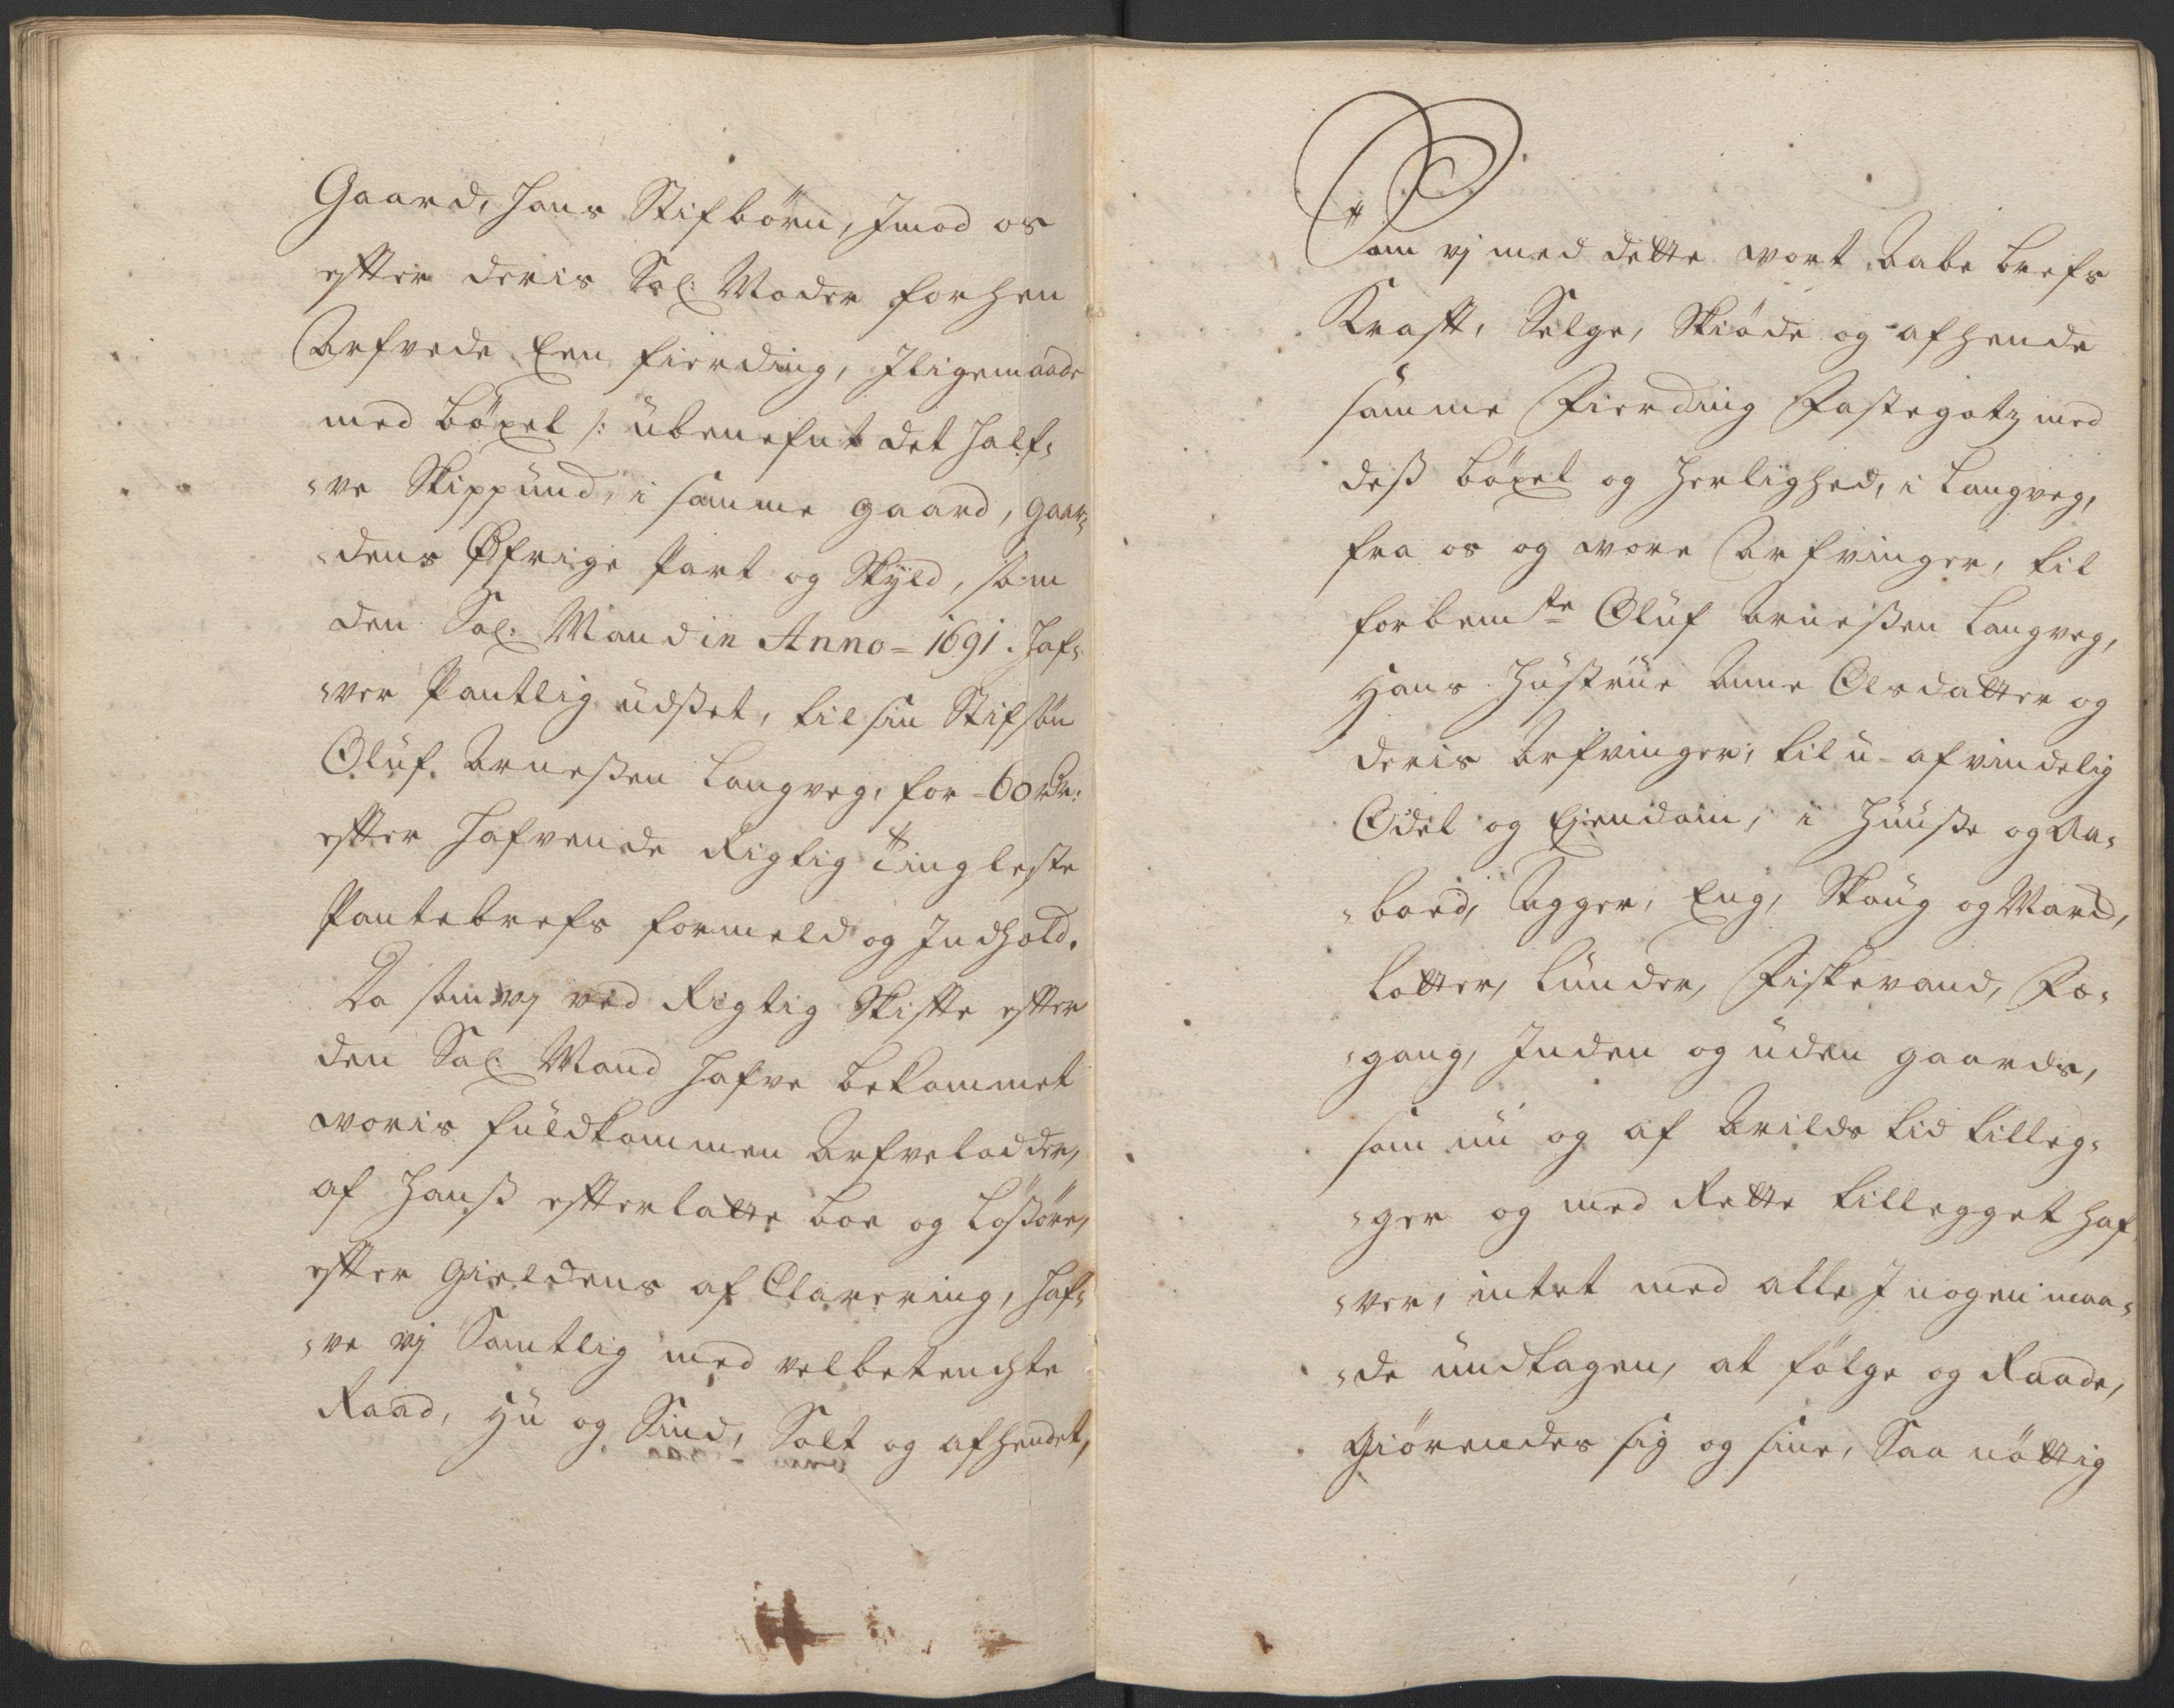 Gaard, hans Stifbörn, Imod os
efter deris Sal: Moder forhen
Arfvede Een fierding, Iligemaade
med böxel /: ubenefnt det half,
,ve Skippund, i samme gaard, gaar,
,dens Øfrige Part og Skyld, som
den Sal: Mand in Anno = 1691. haf,
,ver Pantlig udsset, til sin Stifsön
Oluf Arnessen Langveg, for = 60 rdr:
efter hafvende Rigtig Tingleste
Pantebrefs formeld og Indhold.
Da som vj ved Rigtig Skifte efter
den Sal: Mand hafve bekommet
woris fuldkommen Arfvelodder,
af hanß efterlatte boe og Lößöre,
efter gieldens af Clarering, haf,
,ve vj Samtlig med velbetenchte
Raad, Hu og Sind, Solt og afhendet,
Som vj med dette wort Aabe brefs
Kraft, Selge, Skiöde og afhende
samme Fierding Fastegotz med
deß böxel og herlighed, i Langveg,
fra os og wore Arfvinger, til
forbemte Oluf Arnessen Langveg,
Hans Hustrüe Anne Olsdatter og
deris Arfvinger, til u-afvindelig
Odel og Ejendom, i Huuße og Aa,
,boed, Agger, Eng, Skoug og Mark,
Lotter, Lunder, Fiskevand, Fæ,
,gang, Inden og uden gaards,
som nu og af Arilds tid tilleg,
,ger og med Rette tillegget haf
,ver, intet med alle I nogen maa,
,de undtagen, at fölge og Raade,
giörendes sig og sine, Saa nöttig